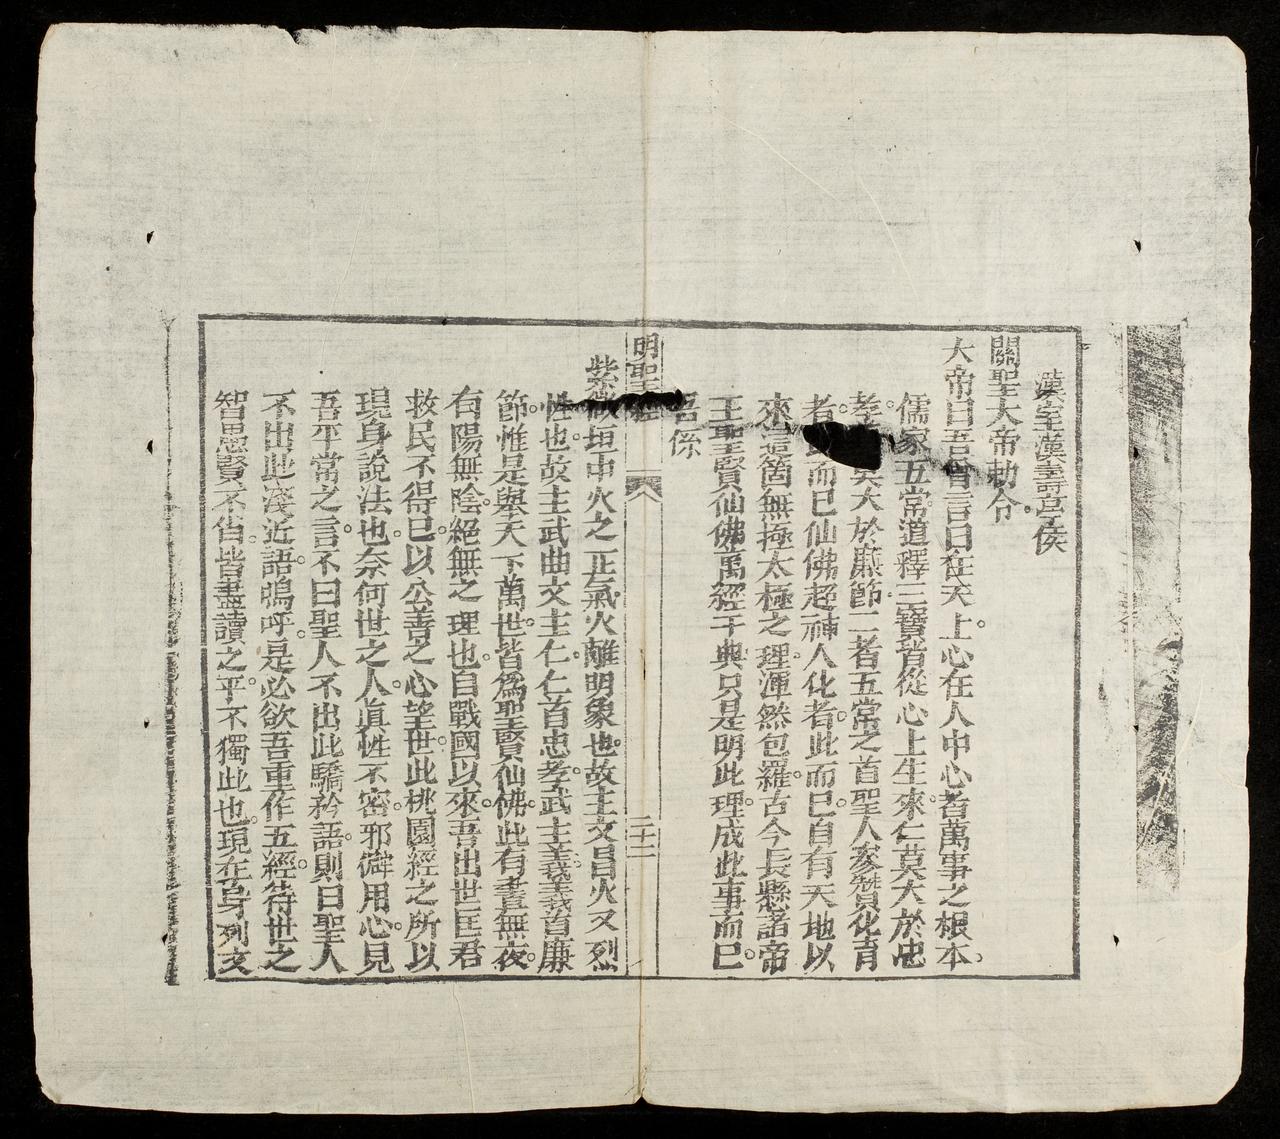 漢室漢壽亭侯
關聖大帝勅令。
大帝曰吾曾言曰在天。上心在人中心者萬事之根本。
儒家五常道釋三寶皆從心上生來。仁莫大於忠
孝莫大於廉節。二者五常之首聖人參贊化育
者。而已仙佛超神入化者。此而已自有天地以
來這箇無極太極之理。渾然包羅。古今長懸諸帝
王聖賢仙佛萬經千典只是明此理。成此事而已。
吾係
明聖經
二十二
紫微垣中火之正氣火離明象也。故主文昌火又烈
性也。故主武曲文主仁。仁首忠孝。武主義。義首廉
節。惟是與天下萬世。皆爲聖賢仙佛。此有晝無夜。
有陽無陰。絕無之理也。自戰國以來。吾出世匡君
救民不得已。以公善之心望世。此桃園經之所以
現身說法也。奈何世之人。眞性不密。邪僻用心。見
吾平常之言。不曰聖人不出此驕矜語。則曰聖人
不出此淺近。語。嗚呼。是必欲吾重作五經。待世之
智愚賢不肖。皆盡讀之。乎不獨此也。現在身列文